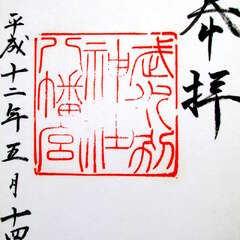 奉拝
武水別
神社
八幡宮
平成十二年五月十四